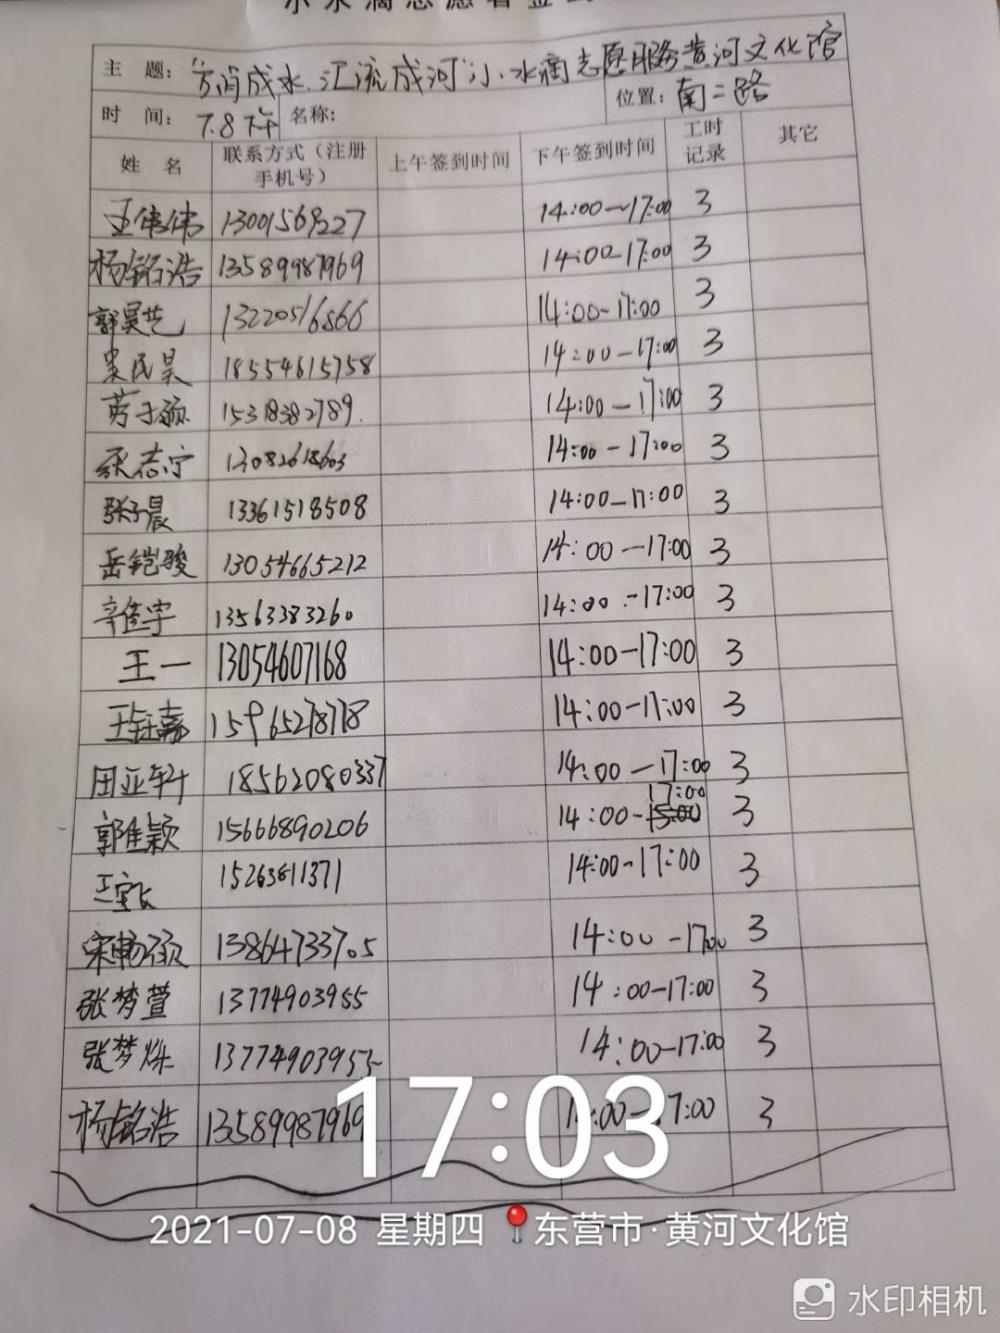 小水滴志愿者签
主 题: 方涓成水.汇流成河 小水滴志愿服务黄河文化馆
时 间: 7.8下午 名称: 位置: 南二路
姓 名 联系方式(注册手机号) 上午签到时间 下午签到时间 工时记录 其它
王伟伟 13001569227 14:00~17:00 3
杨铭浩 13589987969 14:00-17:00 3
郭昊艺 13220516866 14:00-17:00 3
吴民昊 18554615758 14:00-17:00 3
劳子颖 15318382789. 14:00-17:00 3
张志宁 13082618603 14:00-17:00 3
张子晨 13361518508 14:00-17:00 3
岳铠骏 13054665212 14:00-17:00 3
辛佳宇 13563383260 14:00-17:00 3
王一 13054607168 14:00-17:00 3
王钰嘉 15965278718 14:00-17:00 3
田亚轩 18562080337 14:00-17:00 3
郭佳颖 15666890206 14:00-17:00 3
15263811371 14:00-17:00 3
宋畅颀 13864733705 14:00-17:00 3
张梦萱 13774903955 14:00-17:00 3
张梦烁 13774903955 14:00-17:00 3
杨铭浩 13589987969 14:00-17:00 3
17:03
2021-07-08 星期四 东营市·黄河文化馆
水印相机